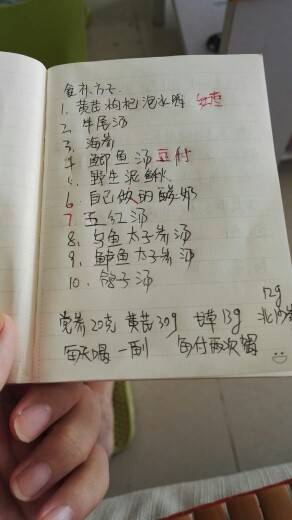 食补方子
1. 黄芪枸杞泡水喝 红枣
2. 牛尾汤
3. 海参
4 鲫鱼汤 豆付
5. 野生泥鳅
6. 自己做的酸奶
7 五红汤
8. 乌鱼太子参汤
9. 鲈鱼太子参汤
10. 鸽子汤
12g
党参20克 黄芪30g 甘草13g 北沙参
每天喝一副 每付两次喝